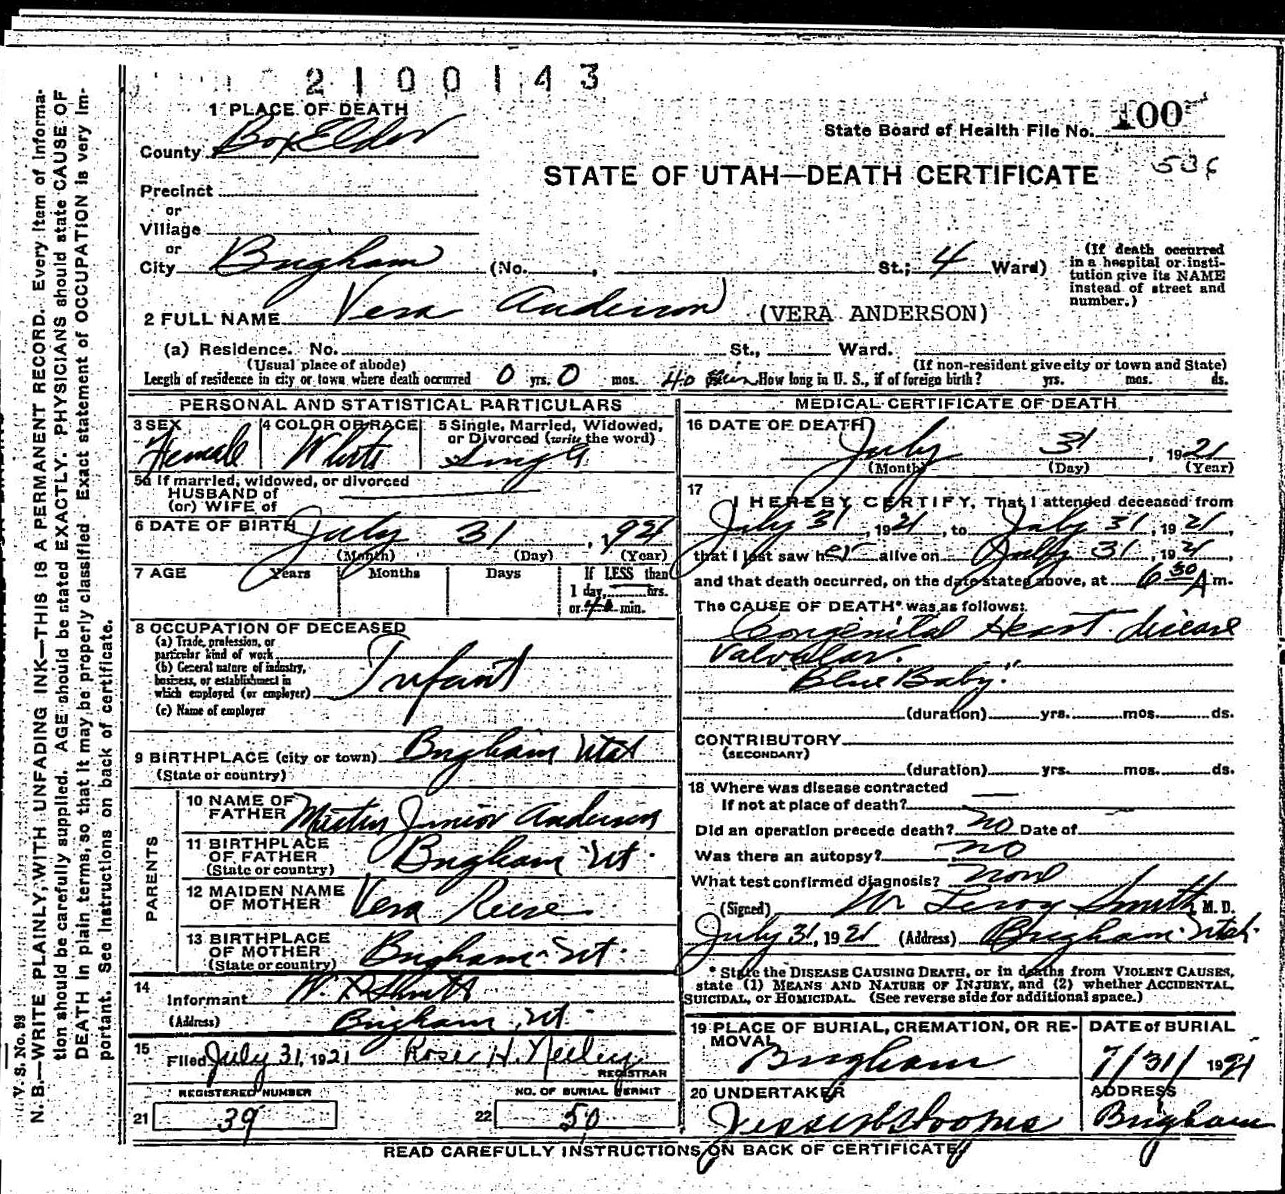 2100143
1 PLACE OF DEATH
County Box Elder
State Board of Health File No. 100
Precinct
or
Village
or
STATE OF UTAH—DEATH CERTIFICATE
536
City Brigham (No. , St.; 4 Ward)
(If death occurred in a hospital or institution give its NAME instead of street and number.)
2 FULL NAME Vera Anderson (VERA ANDERSON)
(a) Residence. No. St., Ward.
(Usual place of abode) (If non-resident give city or town and State)
Length of residence in city or town where death occurred 0 yrs. 0 mos. 40 min How long in U. S., if of foreign birth? yrs. mos. ds.
PERSONAL AND STATISTICAL PARTICULARS
3 SEX Female
4 COLOR OR RACE White
5 Single, Married, Widowed, or Divorced (write the word) Single
5a If married, widowed, or divorced
HUSBAND of
(or) WIFE of
6 DATE OF BIRTH July 31, 1921
(Month) (Day) (Year)
7 AGE Years Months Days If LESS than
1 day, hrs.
or 40 min.
8 OCCUPATION OF DECEASED
(a) Trade, profession, or
particular kind of work
(b) General nature of industry,
business, or establishment in
which employed (or employer) Infant
(c) Name of employer
9 BIRTHPLACE (city or town) Brigham Utah
(State or country)
PARENTS
10 NAME OF FATHER Junior Anderson
11 BIRTHPLACE OF FATHER Brigham Ut.
(State or country)
12 MAIDEN NAME OF MOTHER Vera Reese
13 BIRTHPLACE OF MOTHER Brigham Ut.
(State or country)
14
Informant W.
(Address) Brigham, Ut.
15
Filed July 31, 1921 Rose H. Neeley
REGISTRAR
REGISTERED NUMBER NO. OF BURIAL PERMIT
21 39 22 50
MEDICAL CERTIFICATE OF DEATH
16 DATE OF DEATH July 31, 1921
(Month) (Day) (Year)
17
I HEREBY CERTIFY, That I attended deceased from
July 31, 1921, to July 31, 1921,
that I last saw her alive on July 31, 1921,
and that death occurred, on the date stated above, at 6 30 A m.
The CAUSE OF DEATH* was as follows:
Congenital Heart disease
Valvular.
"Blue Baby."
(duration) yrs. mos. ds.
CONTRIBUTORY
(SECONDARY)
(duration) yrs. mos. ds.
18 Where was disease contracted
If not at place of death?
Did an operation precede death? no Date of
Was there an autopsy? no
What test confirmed diagnosis? none
(Signed) W Leroy Smith, M. D.
July 31, 1921 (Address) Brigham Utah.
* State the DISEASE CAUSING DEATH, or in deaths from VIOLENT CAUSES,
state (1) MEANS AND NATURE OF INJURY, and (2) whether ACCIDENTAL,
SUICIDAL, or HOMICIDAL. (See reverse side for additional space.)
19 PLACE OF BURIAL, CREMATION, OR REMOVAL Brigham
DATE of BURIAL 7/31/ 1921
20 UNDERTAKER
ADDRESS Brigham
READ CAREFULLY INSTRUCTIONS ON BACK OF CERTIFICATE
V. S. No. 93
N. B.—WRITE PLAINLY, WITH UNFADING INK—THIS IS A PERMANENT RECORD. Every item of informa-
tion should be carefully supplied. AGE should be stated EXACTLY. PHYSICIANS should state CAUSE OF
DEATH in plain terms, so that it may be properly classified. Exact statement of OCCUPATION is very im-
portant. See instructions on back of certificate.